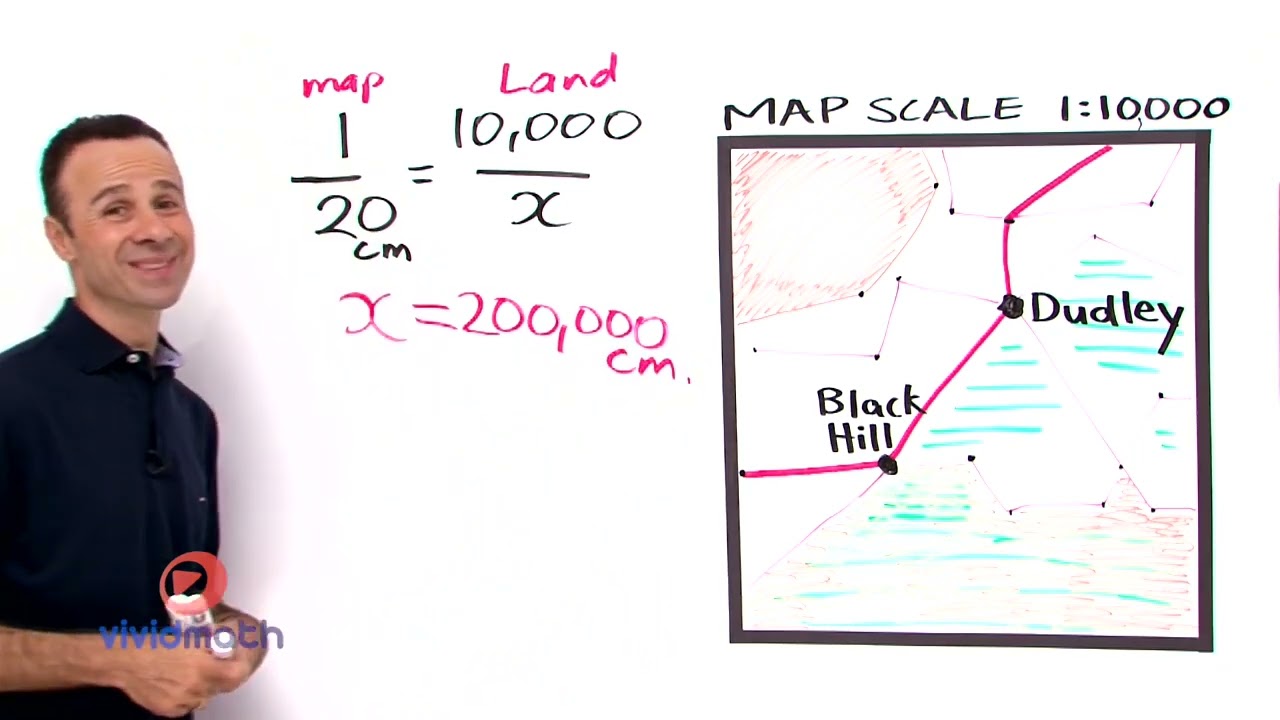 map Land
1 = 10,000
20 cm x
x = 200,000 cm.
MAP SCALE 1:10,000
Dudley
Black
Hill
vividmath